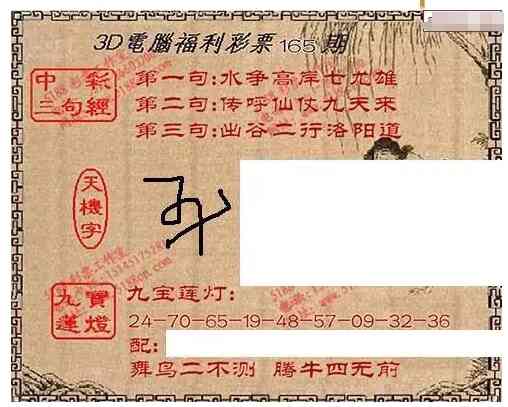 3D電腦福利彩票165期
中彩三句經
第一句:水争高岸七龙雄
第二句:传呼仙仗九天来
第三句:出谷二行洛阳道
天機字
九寶蓮燈
九宝莲灯:
24-70-65-19-48-57-09-32-36
配:
舞鸟二不测 腾牛四无前